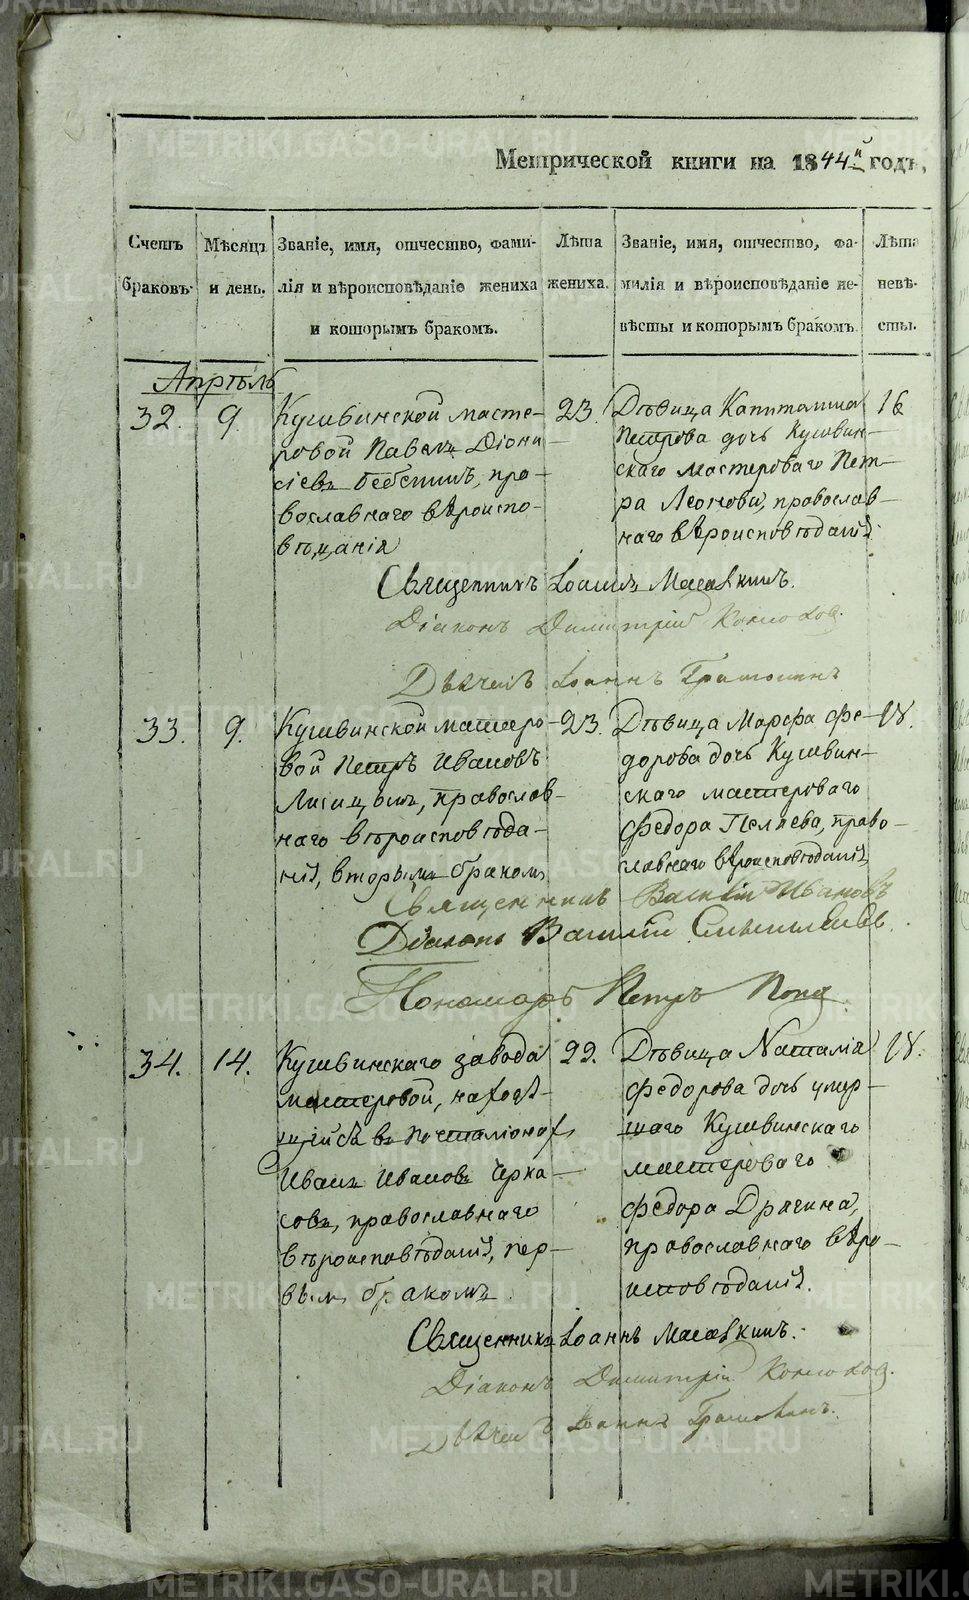 Метрической книги на 1844й годъ,
Счетъ браковъ.
Мѣсяцъ и день.
Званіе, имя, отчество, фами-
лія и вѣроисповѣданіе жениха
и которымъ бракомъ.
Лѣта жениха.
Званіе, имя, отчество, фа-
милія и вѣроисповѣданіе не-
вѣсты и которымъ бракомъ.
Лѣта невѣ-
сты.
Апрѣль
32. 9.
Кушвинской масте-
ровой Павелъ Діони
сіевъ, пра-
вославнаго вѣроиспо-
вѣданія
23.
Дѣвица Капиталина
Петрова дочь Кушвин-
скаго мастероваго Пет-
ра Леонова, православ-
наго вѣроисповѣданія.
16
Священникъ Іоаннъ
Діаконъ Димитрій
Дьячекъ Іоаннъ
33. 9.
Кушвинской мастеро-
вой Петръ Ивановъ
Лисицынъ, православ-
наго вѣроисповѣда-
нія, вторымъ бракомъ
23.
Дѣвица Марфа Фе-
дорова дочь Кушвин-
скаго мастероваго
Федора Пеляева, право-
славнаго вѣроисповѣданія,
18.
Священникъ Василій Ивановъ
Діаконъ Василій
Пономарь Петръ Попов
34. 14.
Кушвинскаго завода
мастеровой, находя-
щійся въ почталіонах,
Иванъ Ивановъ Черка-
совъ, православнаго
вѣроисповѣданія, пер-
вым бракомъ
22.
Дѣвица Наталія
Федорова дочь умер-
шаго Кушвинскаго
мастероваго
Федора Драгина,
православнаго вѣро-
исповѣданія.
18.
Священникъ Іоаннъ
Діаконъ Димитрій
Дьячекъ Іоаннъ
METRIKI.GASO-URAL.RU